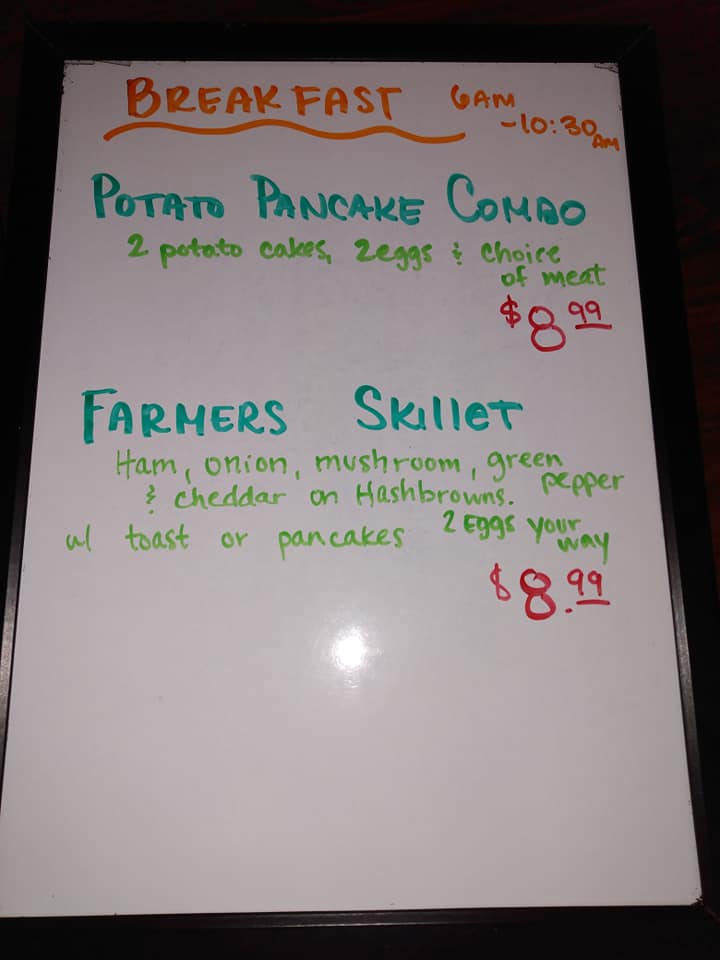 BREAKFAST 6AM
-10:30 AM
POTATO PANCAKE COMBO
2 potato cakes, 2eggs & choice
of meat
$8 99
FARMERS SKillET
Ham, onion, mushroom, green
pepper
& cheddar on Hashbrowns.
w/ toast or pancakes 2 Eggs your
way
$8.99